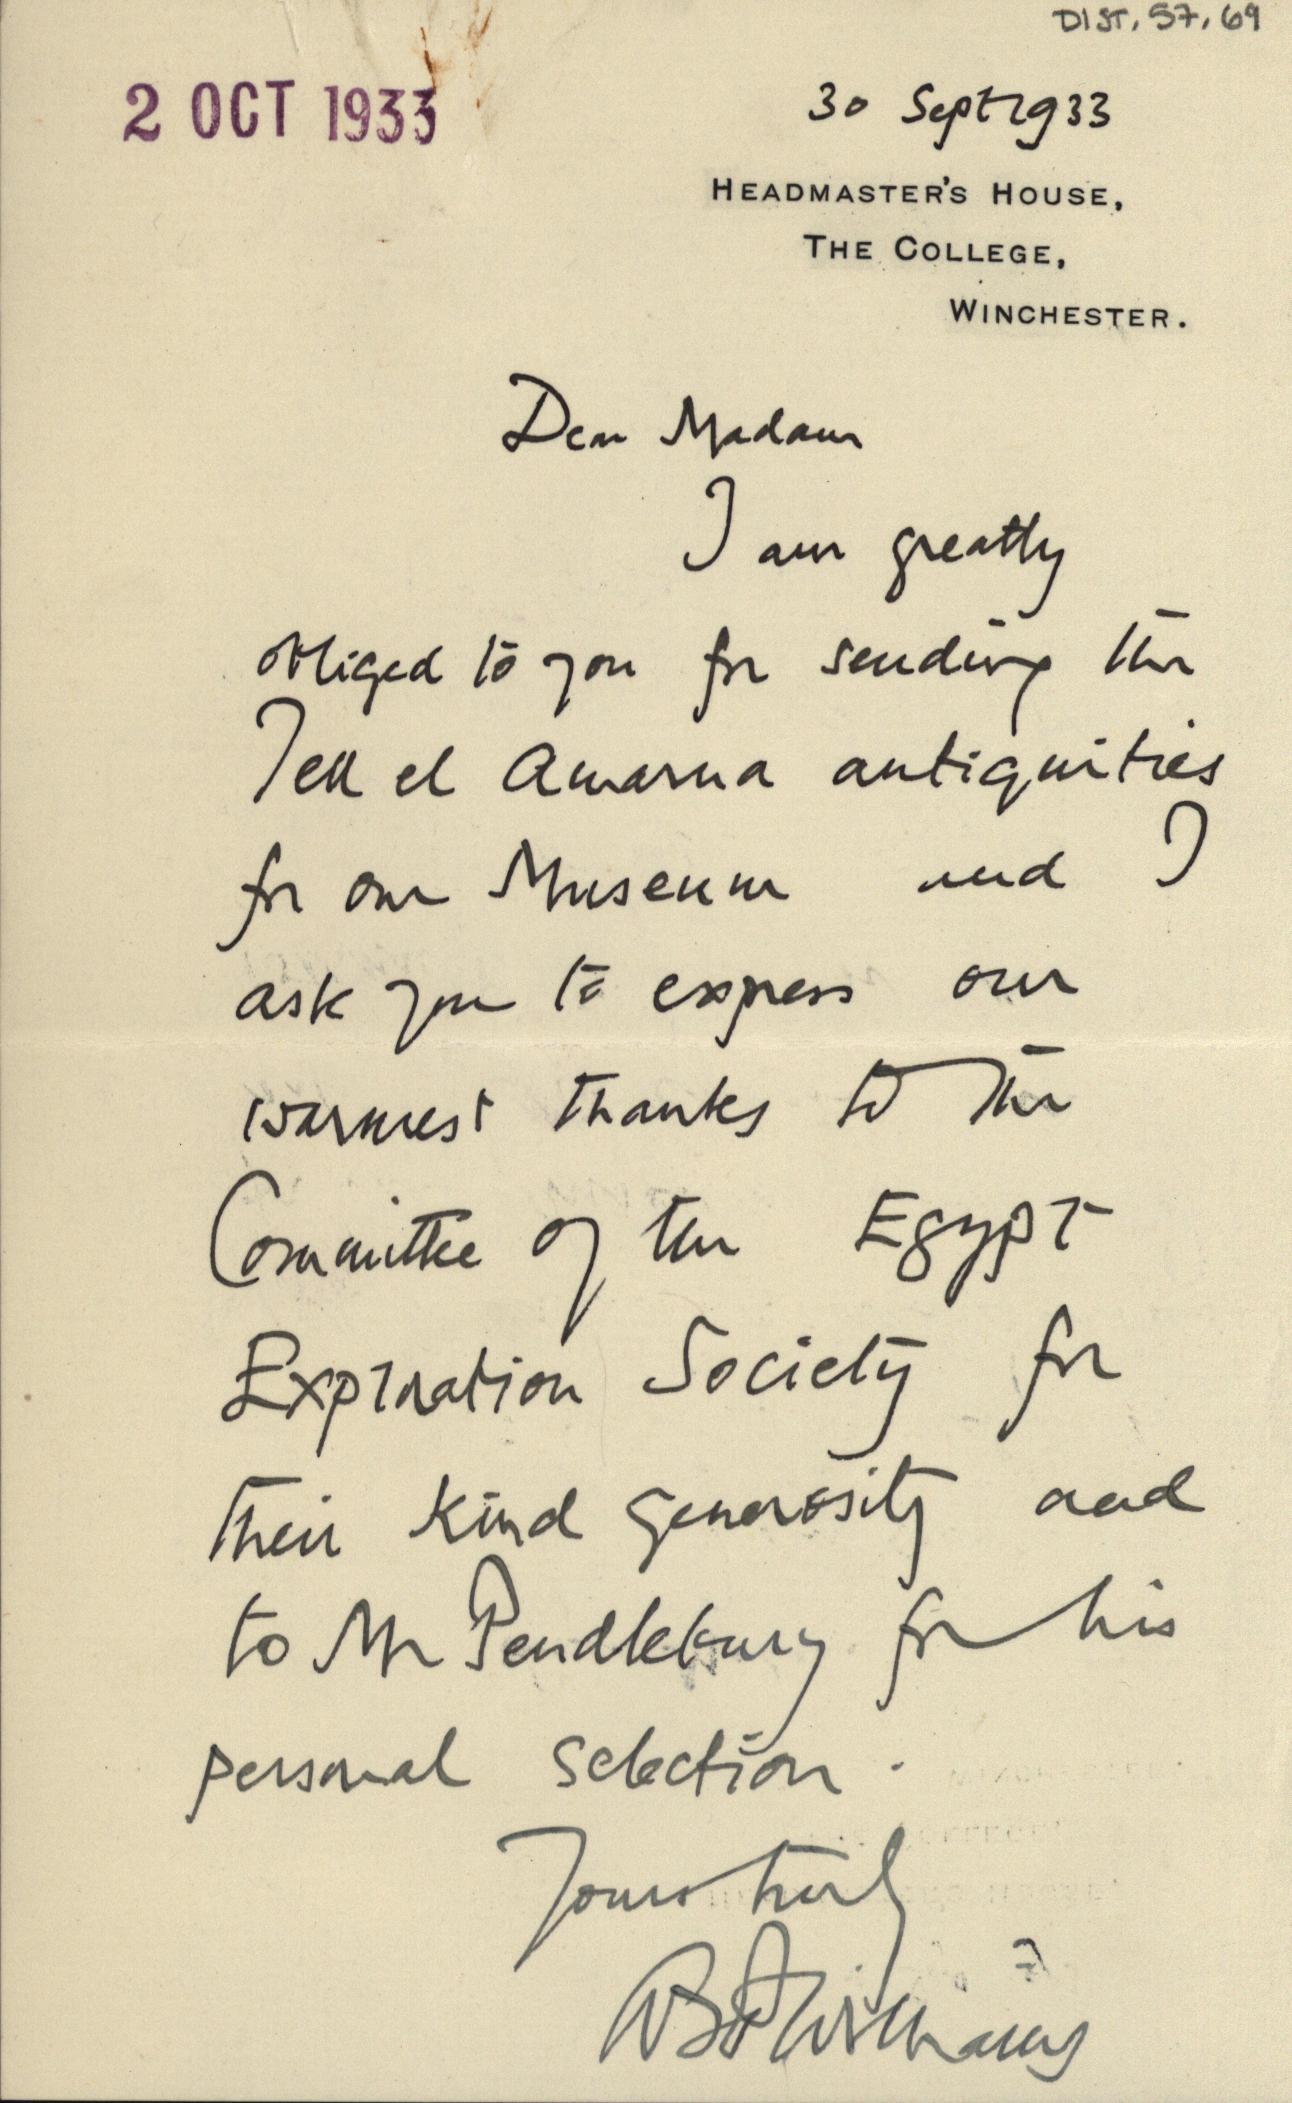 DIST. 57.69
2 OCT 1933
30 Sept 1933
HEADMASTER'S HOUSE,
THE COLLEGE,
WINCHESTER.
Dear Madam
I am greatly
obliged to you for sending the
Tell el Amarna antiquities
for our Museum and I
ask you to express our
warmest thanks to the
Committee of the Egypt
Exploration Society for
their kind generosity and
to Mr Pendlebury for his
personal selection.
Yours truly
Williams